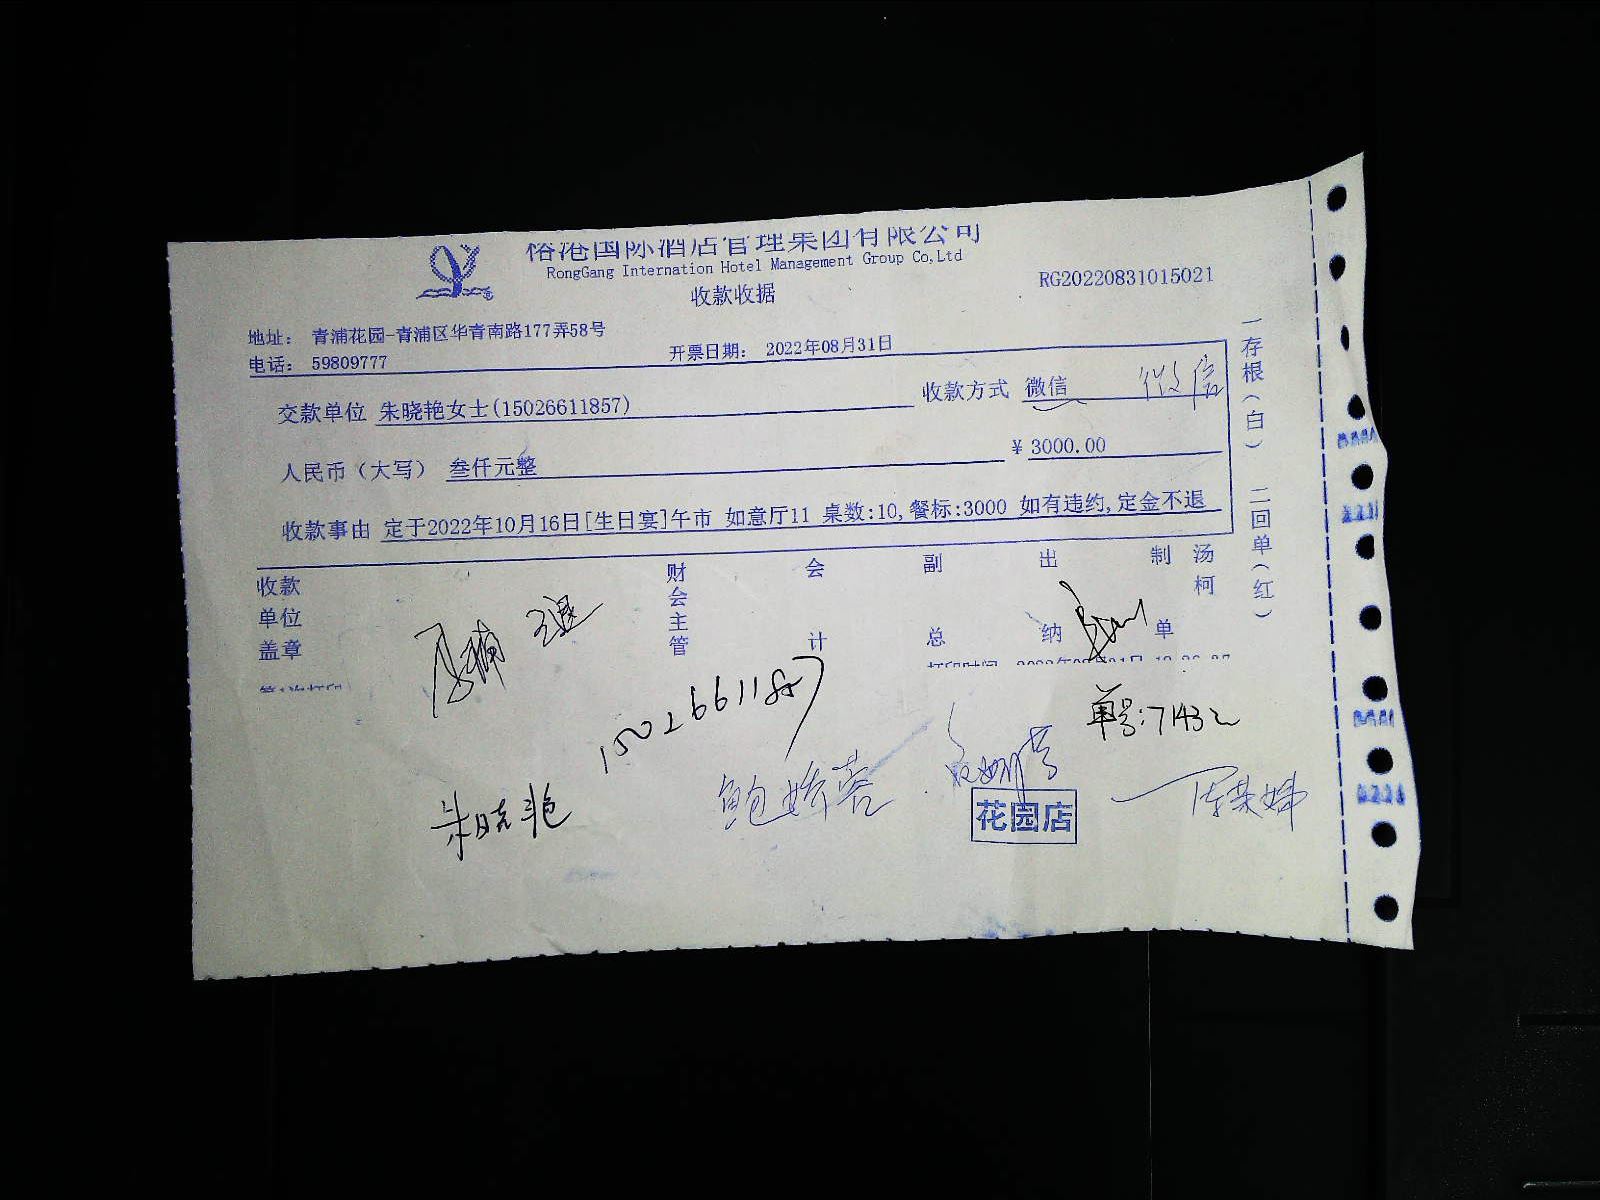 国际酒店管理集团有限公司
RongGang Internation Hotel Management Group Co,Ltd
收款收据
RG20220831015021
地址： 青浦花园-青浦区华青南路177弄58号
电话： 59809777
开票日期： 2022年08月31日
交款单位 朱晓艳女士(15026611857)
收款方式 微信 微信
人民币（大写） 叁仟元整
￥ 3000.00
收款事由 定于2022年10月16日[生日宴]午市 如意厅11 桌数:10,餐标:3000 如有违约,定金不退
一存根（白） 二回单（红）
收款单位盖章
财会主管
会计
副总
出纳
制单
汤柯
15026611857
单号:71432
朱晓艳
鲍娇蓉
花园店